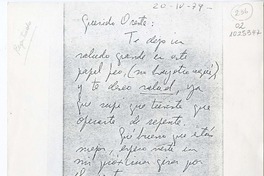 20-IV-79-
Querido Oreste:
Te dejo un
saludo grande en este
papel feo, (no hay otro aquí)
y te deseo salud, ya
que supe que tuviste que
operarte de repente.
Qué bueno que estás
mejor, espero verte en
mi próxima gira por